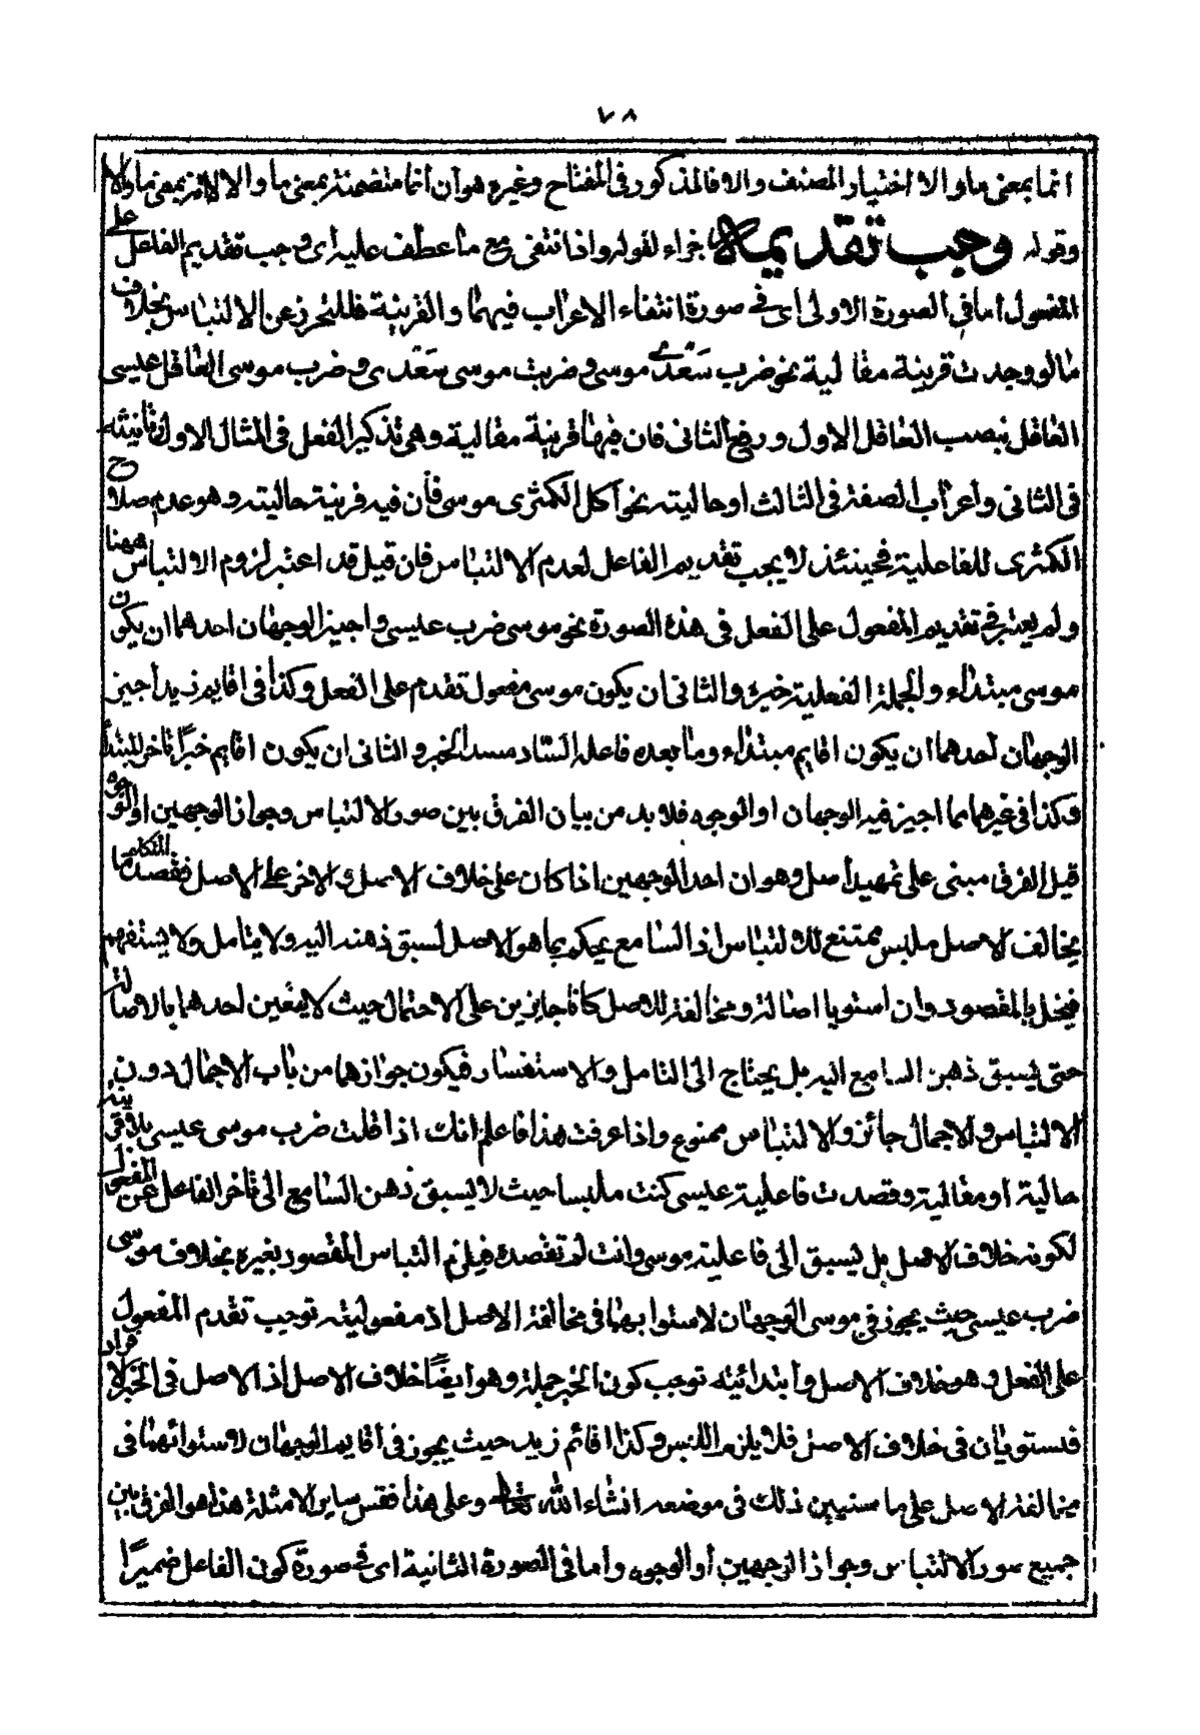 ٧٨
انما بمعنى ما والا اختيار المصنف والا فالمذكور فى المفتاح وغيره هو ان انما متضمنة بمعنى ما والا لا انه بمعنى ما والا
وقوله وجب تقديمه جزاء لقوله واذا انتفى مع ما عطف عليه اى وجب تقديم الفاعل على
المفعول اما فى الصورة الاولى اى فى صورة انتفاء الاعراب فيهما والقرينة فللتحرز عن الالتباس بخلاف
ما لو وجدت قرينة مقالية نحو ضرب سعدى موسى وضربت موسى سعدى وضرب موسى العاقل عيسى
العاقل بنصب العاقل الاول ورفع الثانى فان فيها قرينة مقالية وهى تذكير الفعل فى المثال الاول وتانيثه
فى الثانى واعراب الصفة فى الثالث او حالية نحو اكل الكمثرى موسى فان فيه قرينة حالية وهو عدم صلاح
الكمثرى للفاعلية فحينئذ لا يجب تقديم الفاعل لعدم الالتباس فان قيل قد اعتبر لزوم الالتباس ههنا
ولم يعتبر فى تقديم المفعول على الفعل فى هذه الصورة نحو موسى ضرب عيسى واجيز الوجهان احدهما ان يكون
موسى مبتداء والجملة الفعلية خبره والثانى ان يكون موسى مفعول تقدم على الفعل وكذا فى اقايم زيد اجيز
الوجهان احدهما ان يكون اقايم مبتداء وما بعده فاعله الساد مسد الخبر والثانى ان يكون اقايم خبرًا تاخر للمبتدأ
وكذا فى غيرهما مما اجيز فيه الوجهان او الوجوه فلا بد من بيان الفرق بين صور الالتباس وجواز الوجهين او الوجوه
قيل الفرق مبنى على تمهيد اصل وهو ان احد الوجهين اذا كان على خلاف الاصل والاخر على الاصل فقصد المتكلم ما
يخالف الاصل ملبس ممتنع للالتباس اذ السامع يحكم بما هو الاصل لسبق ذهنه اليه ولا يتامل ولا يستفهم
فيخل بالمقصود وان استويا اصالة ومخالفة للاصل كانا جايزين على الاحتمال حيث لا يتعين احدهما بالاصالة
حتى يسبق ذهن السامع اليه بل يحتاج الى التامل والاستفسار فيكون جوازهما من باب الاجمال دون
الالتباس والاجمال جائز والالتباس ممنوع واذا عرفت هذا فاعلم انك اذا قلت ضرب موسى عيسى بلا قرينة
حالية او مقالية وقصدت فاعلية عيسى كنت ملبسا حيث لا يسبق ذهن السامع الى تاخر الفاعل عن المفعول
لكونه خلاف الاصل بل يسبق الى فاعلية موسى وانت لم تقصده فيلزم التباس المقصود بغيره بخلاف موسى
ضرب عيسى حيث يجوز فى موسى الوجهان لاستوايهما فى مخالفة الاصل اذ مفعوليته توجب تقدم المفعول
على الفعل وهو خلاف الاصل وابتدائيته توجب كون الخبر جملة وهو ايضًا خلاف الاصل اذ الاصل فى الخبر الافراد
فيستويان فى خلاف الاصل فلا يلزم اللبس وكذا اقائم زيد حيث يجوز فى اقايم الوجهان لاستوائهما فى
مخالفة الاصل على ما سنبين ذلك فى موضعه انشاء الله تعالى وعلى هذا فقس ساير الامثلة هذا هو الفرق بين
جميع صور الالتباس وجواز الوجهين او الوجوه واما فى الصورة الثانية اى فى صورة كون الفاعل ضميرًا